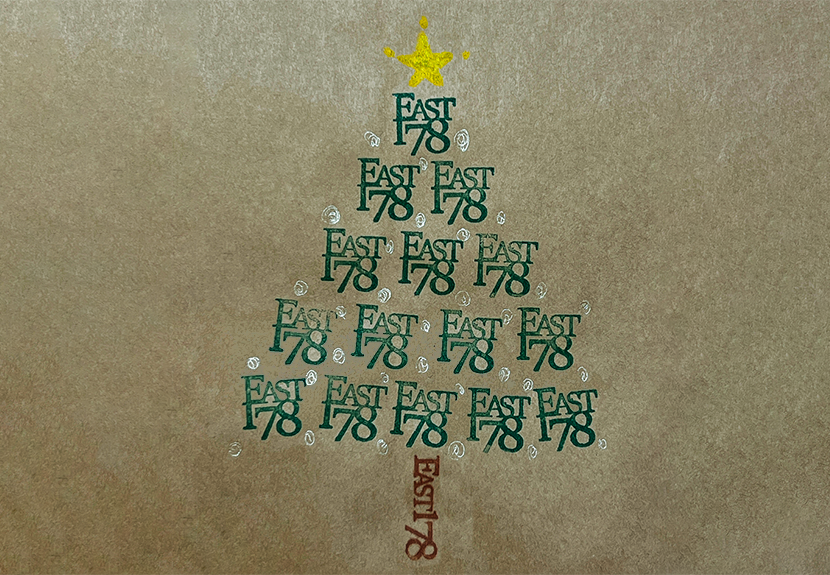 EAST
178
EAST EAST
178 178
EAST EAST EAST
178 178 178
EAST EAST EAST EAST
178 178 178 178
EAST EAST EAST EAST EAST
178 178 178 178 178
EAST 178